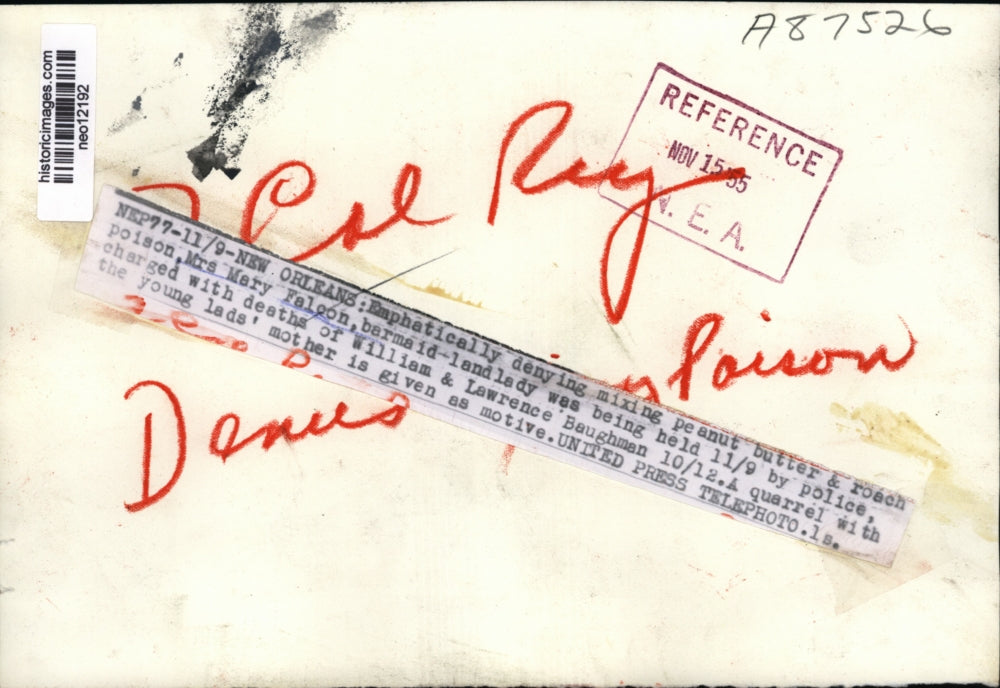 A87526
historicimages.com
neo12192
REFERENCE
NOV 15 '55
N. E. A.
2 Col
NEP77-11/9-NEW ORLEANS:Emphatically denying mixing peanut butter & roach
poison,Mrs Mary Falgon,barmaid-landlady was being held 11/9 by police,
charged with deaths of William & Lawrence Baughman 10/12.A quarrel with
the young lads' mother is given as motive.UNITED PRESS TELEPHOTO.ls.
Poison